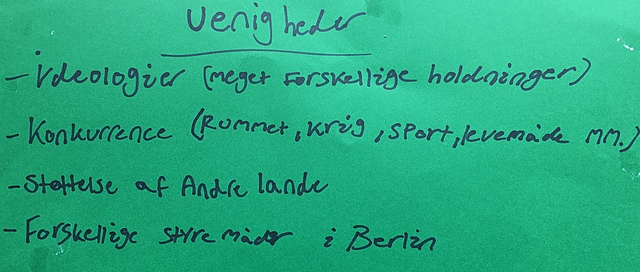 uenigheder
- Ideologier (meget forskellige holdninger)
- Konkurrence (Rummet, krig, sport, levemåde mm.)
- Støttelse af Andre lande
- Forskellige styremåder i Berlin